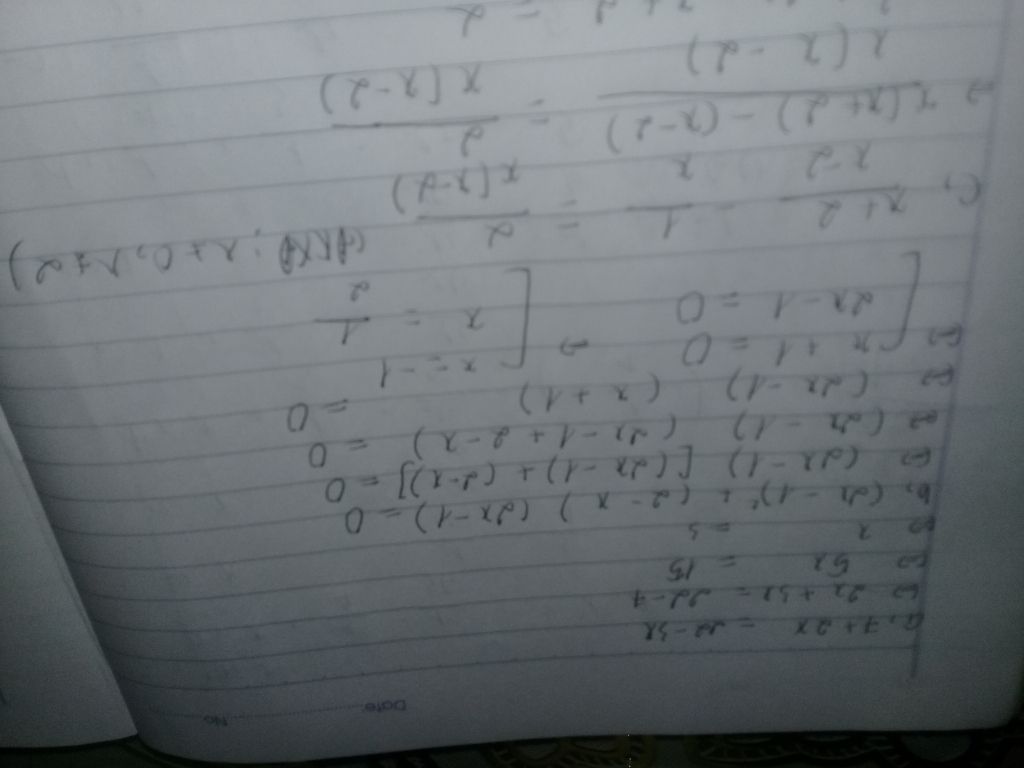 Date No
a, 7 + 2x = 22 - 3x
⇔ 2x + 3x = 22 - 7
⇔ 5x = 15
⇔ x = 3
b, (2x - 1)² + (2 - x) (2x - 1) = 0
⇔ (2x - 1) [(2x - 1) + (2 - x)] = 0
⇔ (2x - 1) (2x - 1 + 2 - x) = 0
⇔ (2x - 1) (x + 1) = 0
⇔ [ x + 1 = 0 ⇔ [ x = -1
2x - 1 = 0 x = 1/2
c, (x + 2)/(x - 2) - 1/x = 2/(x(x - 2)) (ĐKXĐ: x ≠ 0, x ≠ 2)
⇔ (x(x + 2) - (x - 2))/(x(x - 2)) = 2/(x(x - 2))